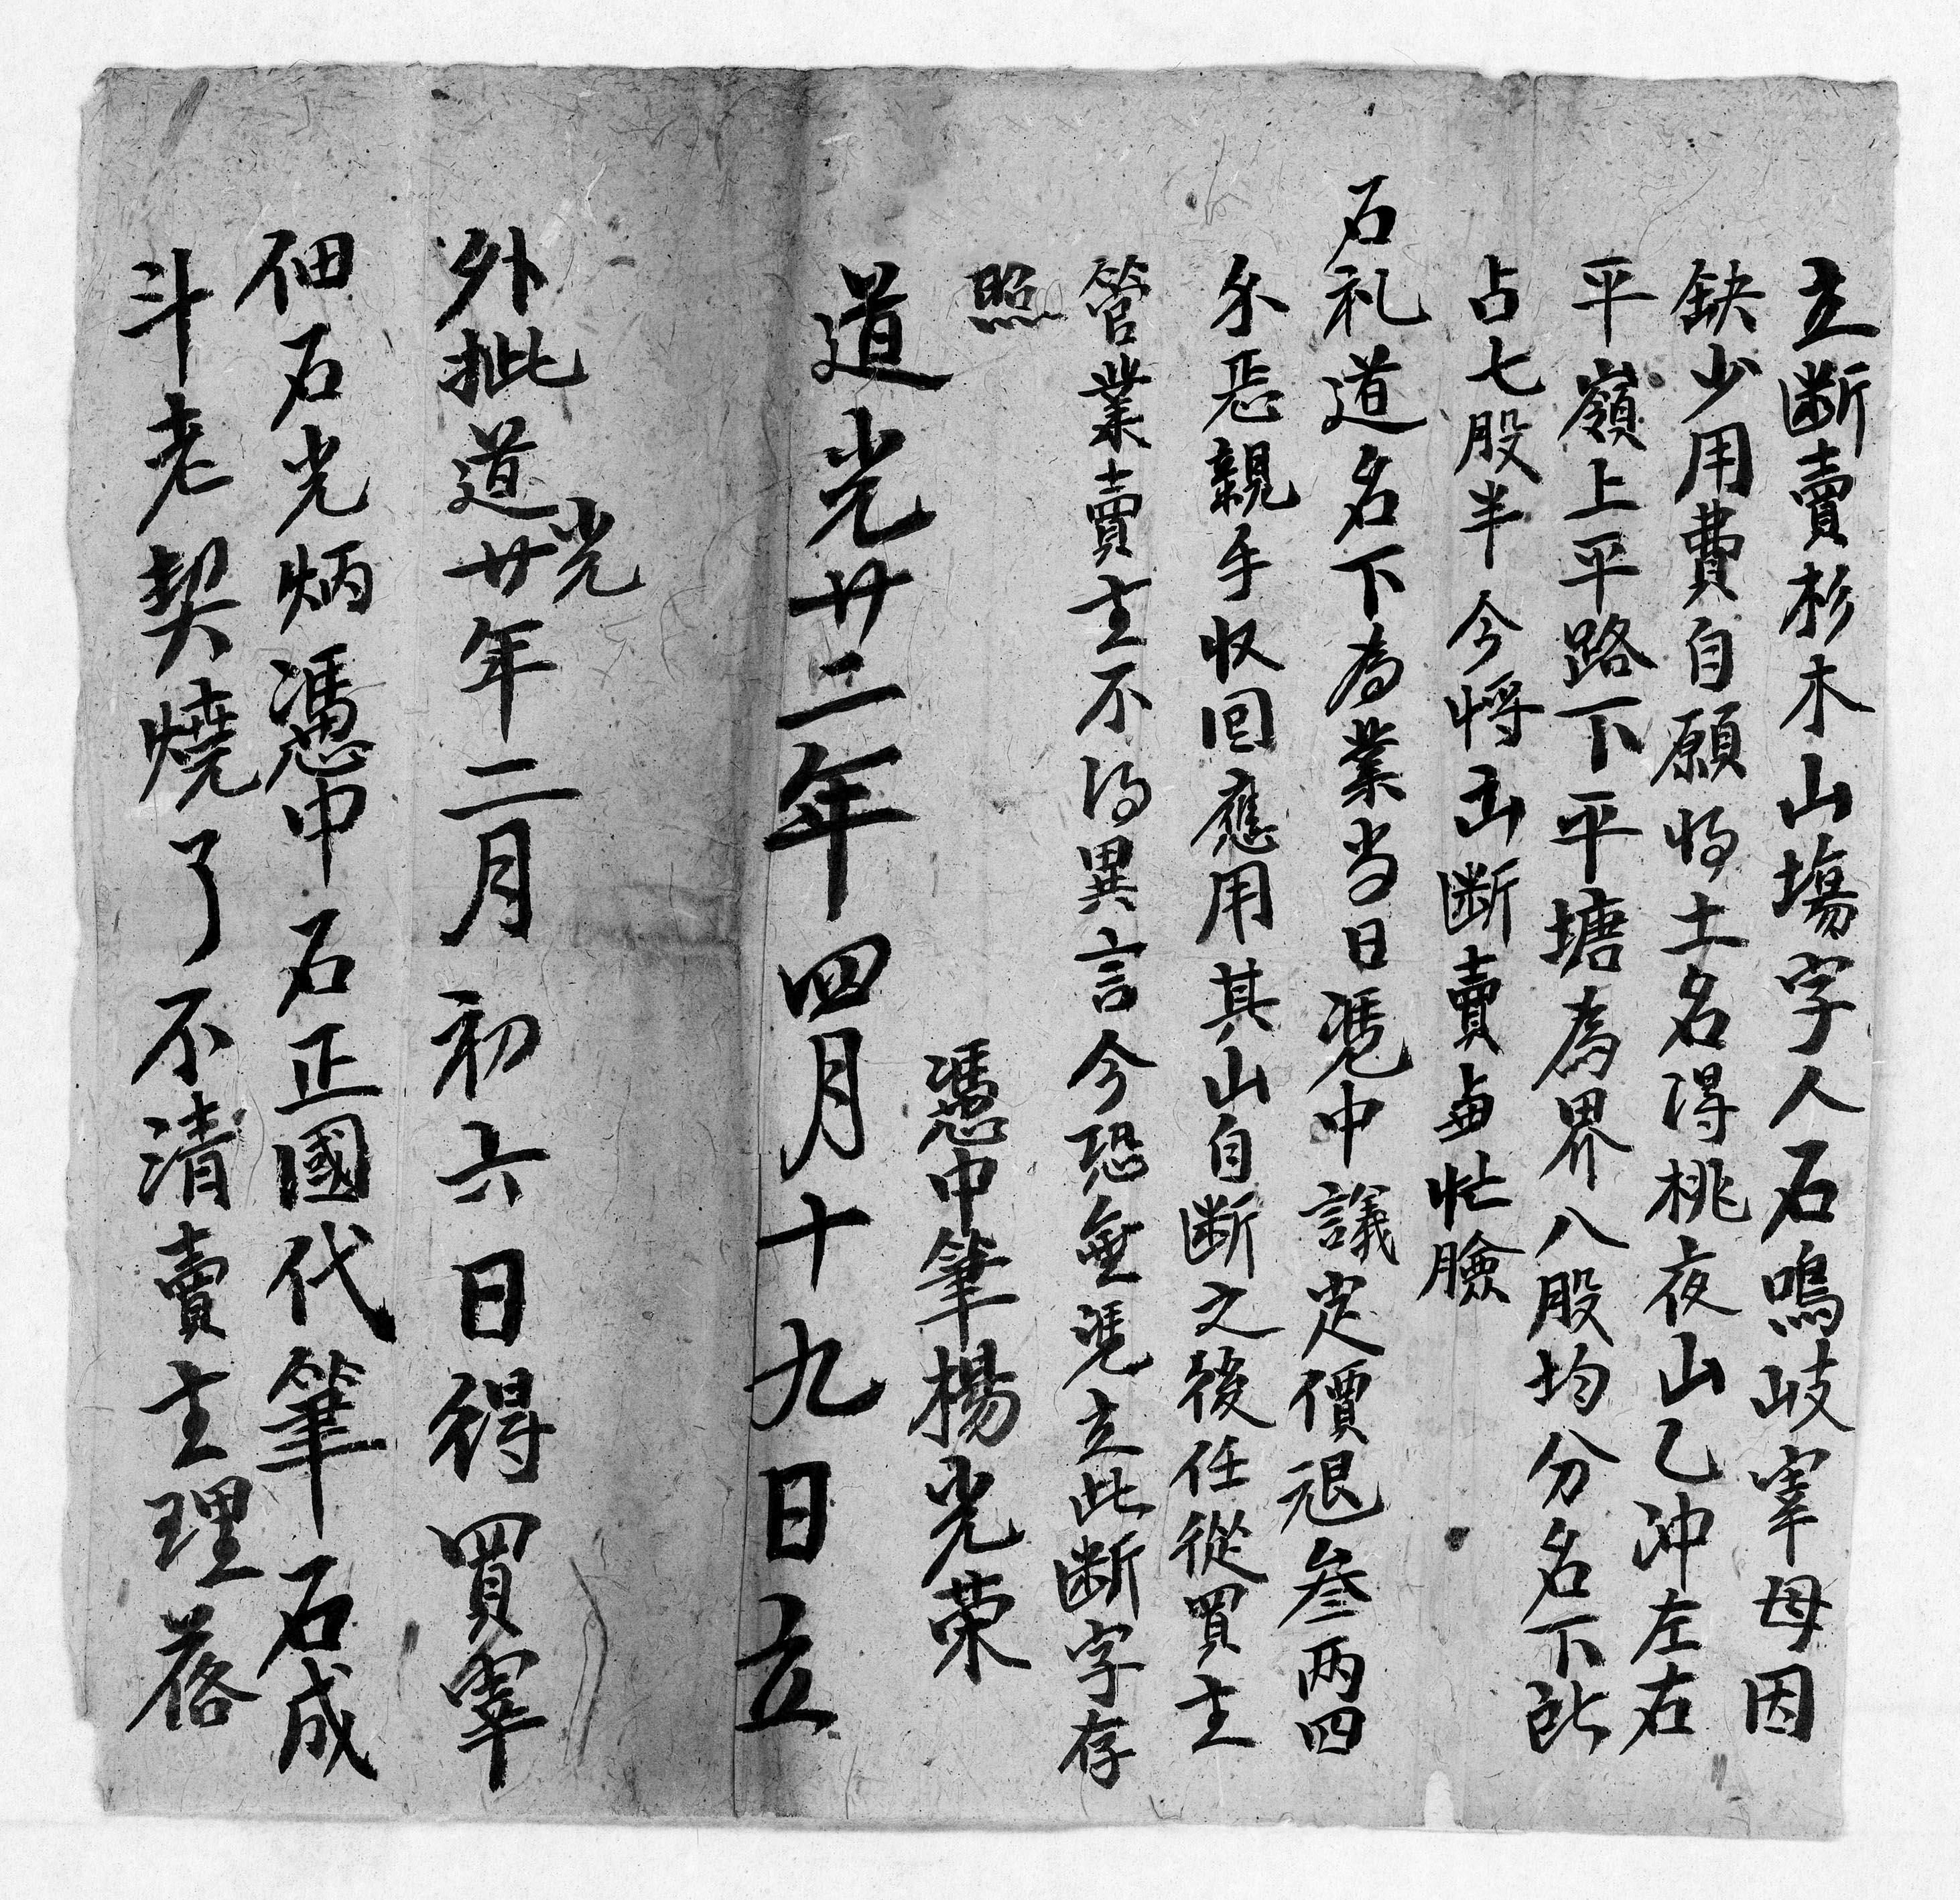 立断賣杉木山塲字人石鳴岐宰母因
缺少用費自願将土名得桃夜山乙冲左右
平嶺上平路下平塘為界八股均分名下所
占七股半今将出断賣与忙臉
石礼道名下為業当日凴中議定價艮叁两四
親手収回應用其山自断之後任從買主
管業賣主不得異言今恐無凴立此断字存
照
憑中筆楊光荣
道光廿二年四月十九日立
外批道光廿年二月初六日得買宰
佃石光炳憑中石正國代筆石成
斗老契燒了不清賣主理落